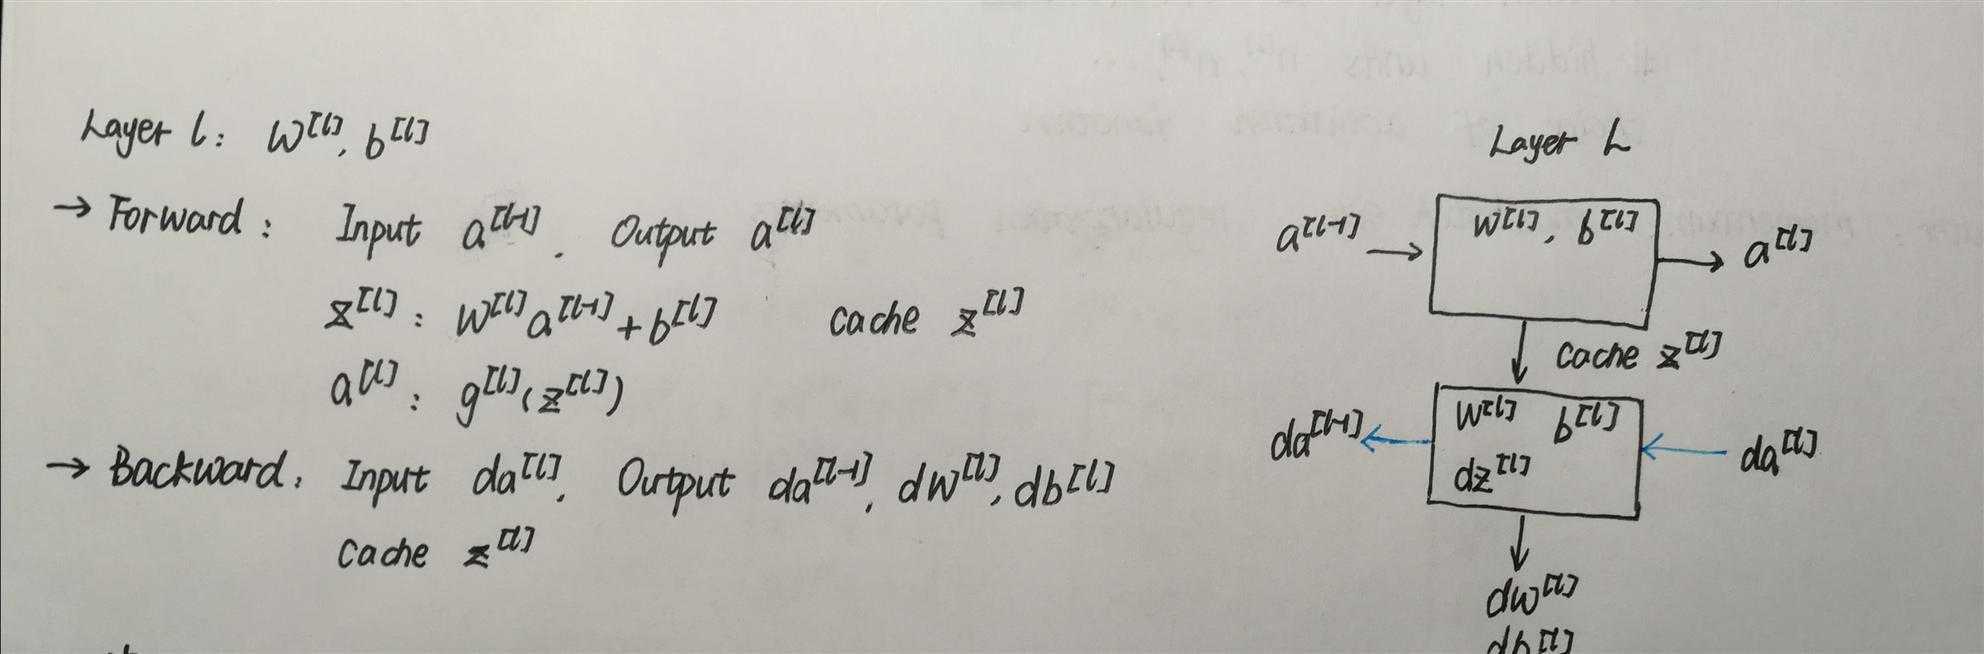 Layer l: W[l], b[l]
→ Forward: Input a[l-1]. Output a[l]
z[l]: W[l]a[l-1]+b[l] cache z[l]
a[l]: g[l](z[l])
→ Backward: Input da[l]. Output da[l-1], dW[l], db[l]
Cache z[l]
Layer L
a[l-1] → W[l], b[l] → a[l]
Cache z[l]
W[l] b[l]
da[l-1] ← ← da[l]
dz[l]
dW[l]
db[l]